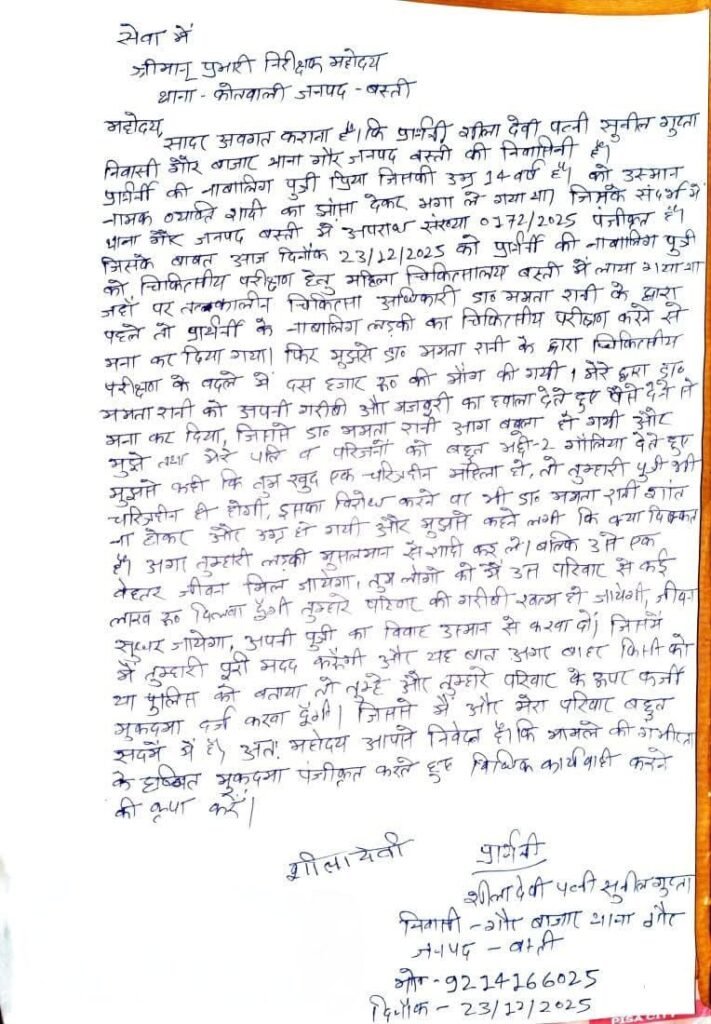 सेवा में
श्रीमान् प्रभारी निरीक्षक महोदय
थाना - कोतवाली जनपद - बस्ती
महोदय,
सादर अवगत कराना है। कि प्रार्थिनी शीला देवी पत्नी सुनील गुप्ता
निवासी गौर बाजार थाना गौर जनपद बस्ती की निवासिनी है।
प्रार्थिनी की नाबालिग पुत्री प्रिया जिसकी उम्र 14 वर्ष है। को उस्मान
नामक व्यक्ति शादी का झांसा देकर भगा ले गया था। जिसके संदर्भ में
थाना गौर जनपद बस्ती में अपराध संख्या 0172/2025 पंजीकृत है।
जिसके बावत आज दिनाँक 23/12/2025 को प्रार्थिनी की नाबालिग पुत्री
को चिकित्सीय परीक्षण हेतु महिला चिकित्सालय बस्ती में लाया गया था
जहाँ पर तत्कालीन चिकित्सा अधिकारी डा० ममता रानी के द्वारा
पहले तो प्रार्थिनी के नाबालिग लड़की का चिकित्सीय परीक्षण करने से
मना कर दिया गया। फिर मुझसे डा० ममता रानी के द्वारा चिकित्सीय
परीक्षण के बदले में दस हजार रू० की माँग की गयी। मेरे द्वारा डा०
ममता रानी को अपनी गरीबी और मजबूरी का हवाला देते हुए पैसे देने से
मना कर दिया, जिससे डा० ममता रानी आग बबूला हो गयी और
मुझे तथा मेरे पति व परिजनों को बहुत भद्दी-2 गालिया देते हुए
मुझसे कही कि तुम खुद एक चरित्रहीन महिला हो, तो तुम्हारी पुत्री भी
चरित्रहीन ही होगी, इसका विरोध करने पर भी डा० ममता रानी शांत
ना होकर और उग्र हो गयी और मुझसे कहने लगी कि क्या दिक्कत
है। अगर तुम्हारी लड़की मुसलमान से शादी कर ले। बल्कि उसे एक
बेहतर जीवन मिल जायेगा, तुम लोगो को मैं उस परिवार से कई
लाख रू० दिलवा दुँगी तुम्हारे परिवार की गरीबी खत्म हो जायेगी, जीवन
सुधर जायेगा, अपनी पुत्री का विवाह उस्मान से करवा दो। जिसमें
मैं तुम्हारी पूरी मदद करूँगी और यह बात अगर बाहर किसी को
या पुलिस को बताया तो तुम्हे और तुम्हारे परिवार के ऊपर फर्जी
मुकदमा दर्ज करवा दूँगी। जिससे मैं और मेरा परिवार बहुत
सदमें में है। अतः महोदय आपसे निवेदन है। कि मामले की गंभीरता
के मुकदमा पंजीकृत करते हुए विधिक कार्यवाही करने
की कृपा करें।
शीला देवी
प्रार्थिनी
शीला देवी पत्नी सुनील गुप्ता
निवासी - गौर बाजार थाना गौर
जनपद - बस्ती
मो० - 9214166025
दिनाँक - 23/12/2025